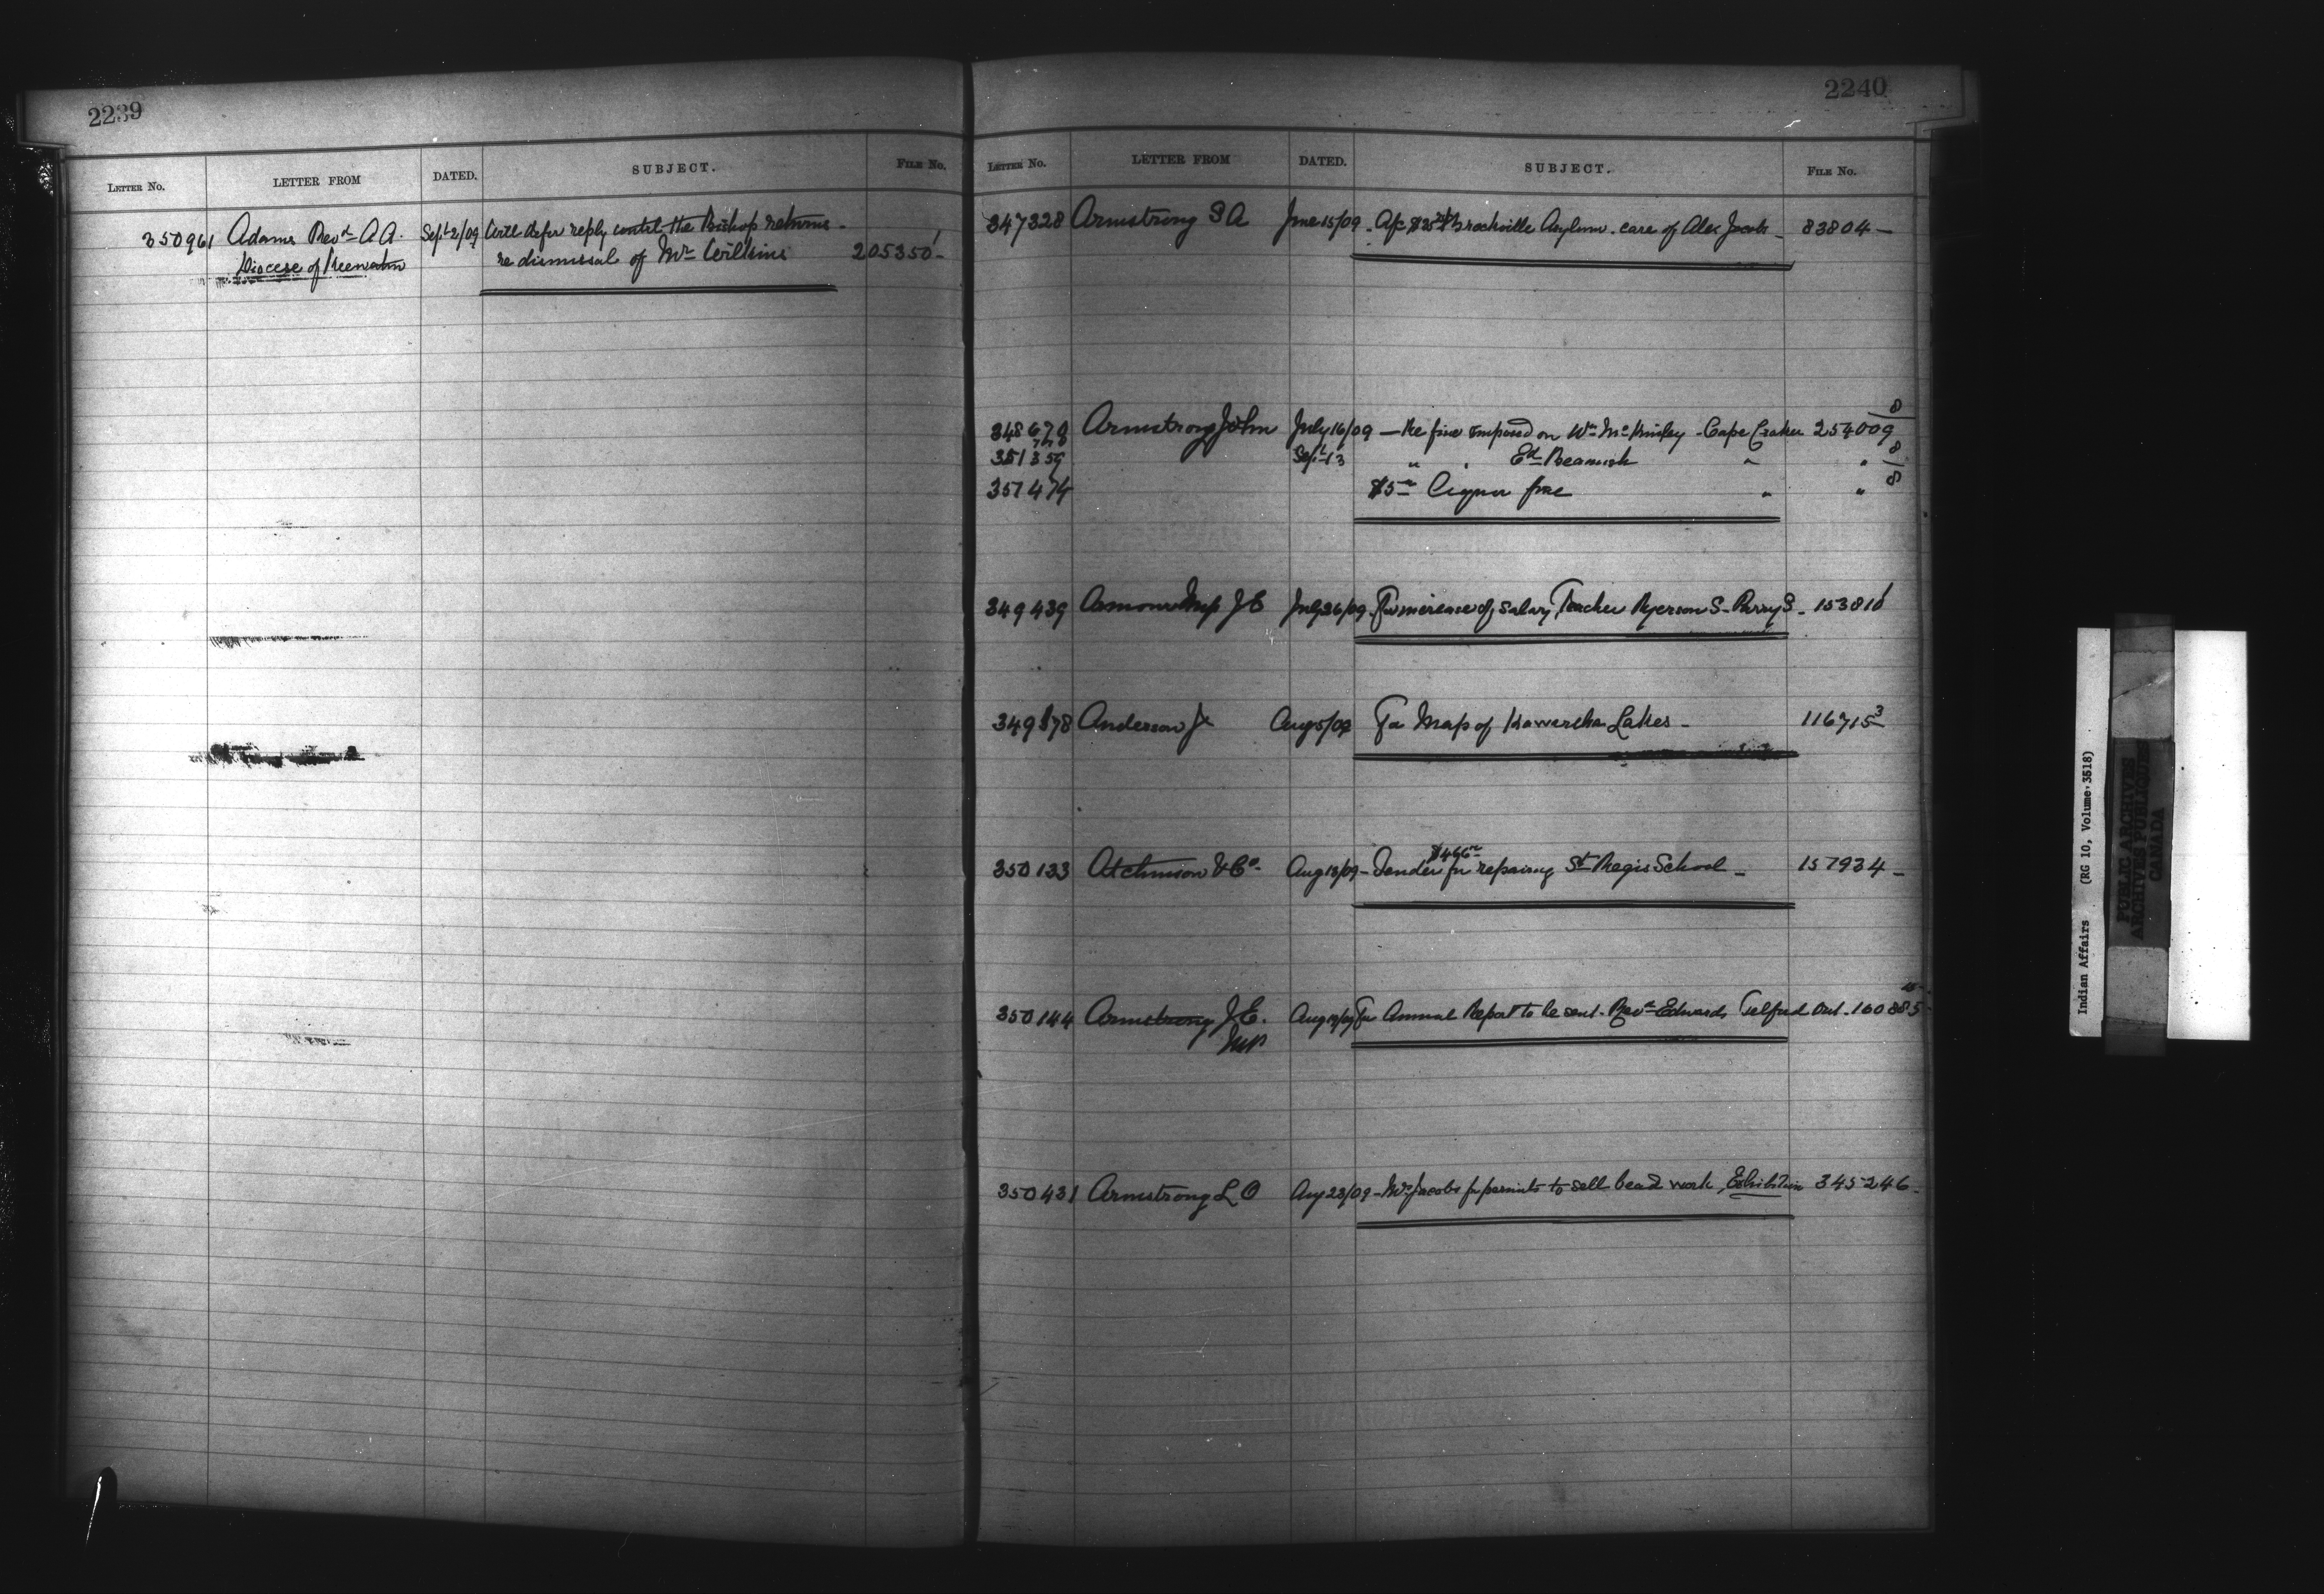 2239
LETTER No. LETTER FROM DATED. SUBJECT. FILE No.
350961 Adams Revd A A. Sept 2/09 Will defer reply until the Bishop returns -
Diocese of Keewatin re dismissal of Mr Wilkins 205350-1
2240
LETTER No. LETTER FROM DATED. SUBJECT. FILE No.
347328 Armstrong S A June 15/09 - Brockville Asylum. care of Alex Jacobs - 83804 -
348670 Armstrong John July 16/09 - Re fine imposed on Wm McKinley - Cape Croker 254009 8
351359 Sept 13 " " Ed Beamish " " 8
351474 $5 Liquor fine " " 8
349439 MP J E July 26/09 - For increase of salary, Teacher Ryerson S - Parry S. - 153810
349378 Anderson J Aug 5/09 For Map of Kawartha Lakes - 116715 3
$466
350133 Atchinson & Co. Aug 18/09 - Tender for repairing St Regis School - 157934 -
350144 Armstrong J E. Aug 19/09 For Annual Report to be sent - Revd Edwards, Telford Ont - 160885
MP
350431 Armstrong L O Aug 23/09 - Mrs Jacobs for permits to sell bead work, Exhibition 345246 -
Indian Affairs (RG 10, Volume 3518)
PUBLIC ARCHIVES
ARCHIVES PUBLIQUES
CANADA